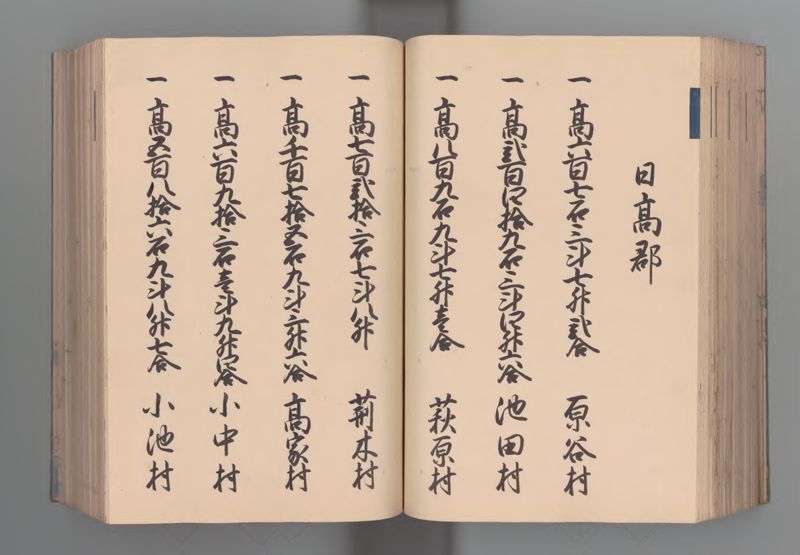 日高郡
一高六百七石三斗七舛弐合 原谷村
一高弐百四拾九石三斗四舛六合 池田村
一高八百九石九斗七舛壱合 萩原村
一高七百弐拾三石七斗八舛 荊木村
一高千百七拾五石九斗三舛六合 高家村
一高六百九拾三石壱斗九舛四合 小中村
一高五百八拾六石九斗八舛七合 小池村